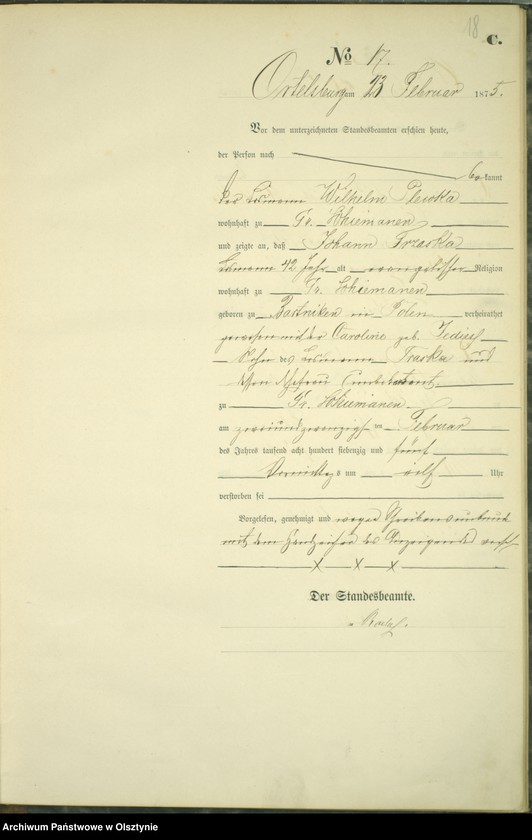 18
C.
No 17.
Ortelsburg am 23 Februar 1875.
Vor dem unterzeichneten Standesbeamten erschien heute,
der Person nach bekannt
der Losmann Wilhelm Plewka
wohnhaft zu Gr. Schiemanen
und zeigte an, daß Johann Trzaska
Losmann 42 Jahr alt evangelischer Religion
wohnhaft zu Gr. Schiemanen
geboren zu in Polen verheirathet
gewesen mit der Caroline geb.
Sohn des Losmann und
dessen Ehefrau
zu Gr. Schiemanen
am zweiundzwanzigsten Februar
des Jahres tausend acht hundert siebenzig und fünf
Vormittags um eilf Uhr
verstorben sei
Vorgelesen, genehmigt und wegen
mit dem Handzeichen des Anzeigenden
X X X
Der Standesbeamte.
Archiwum Państwowe w Olsztynie